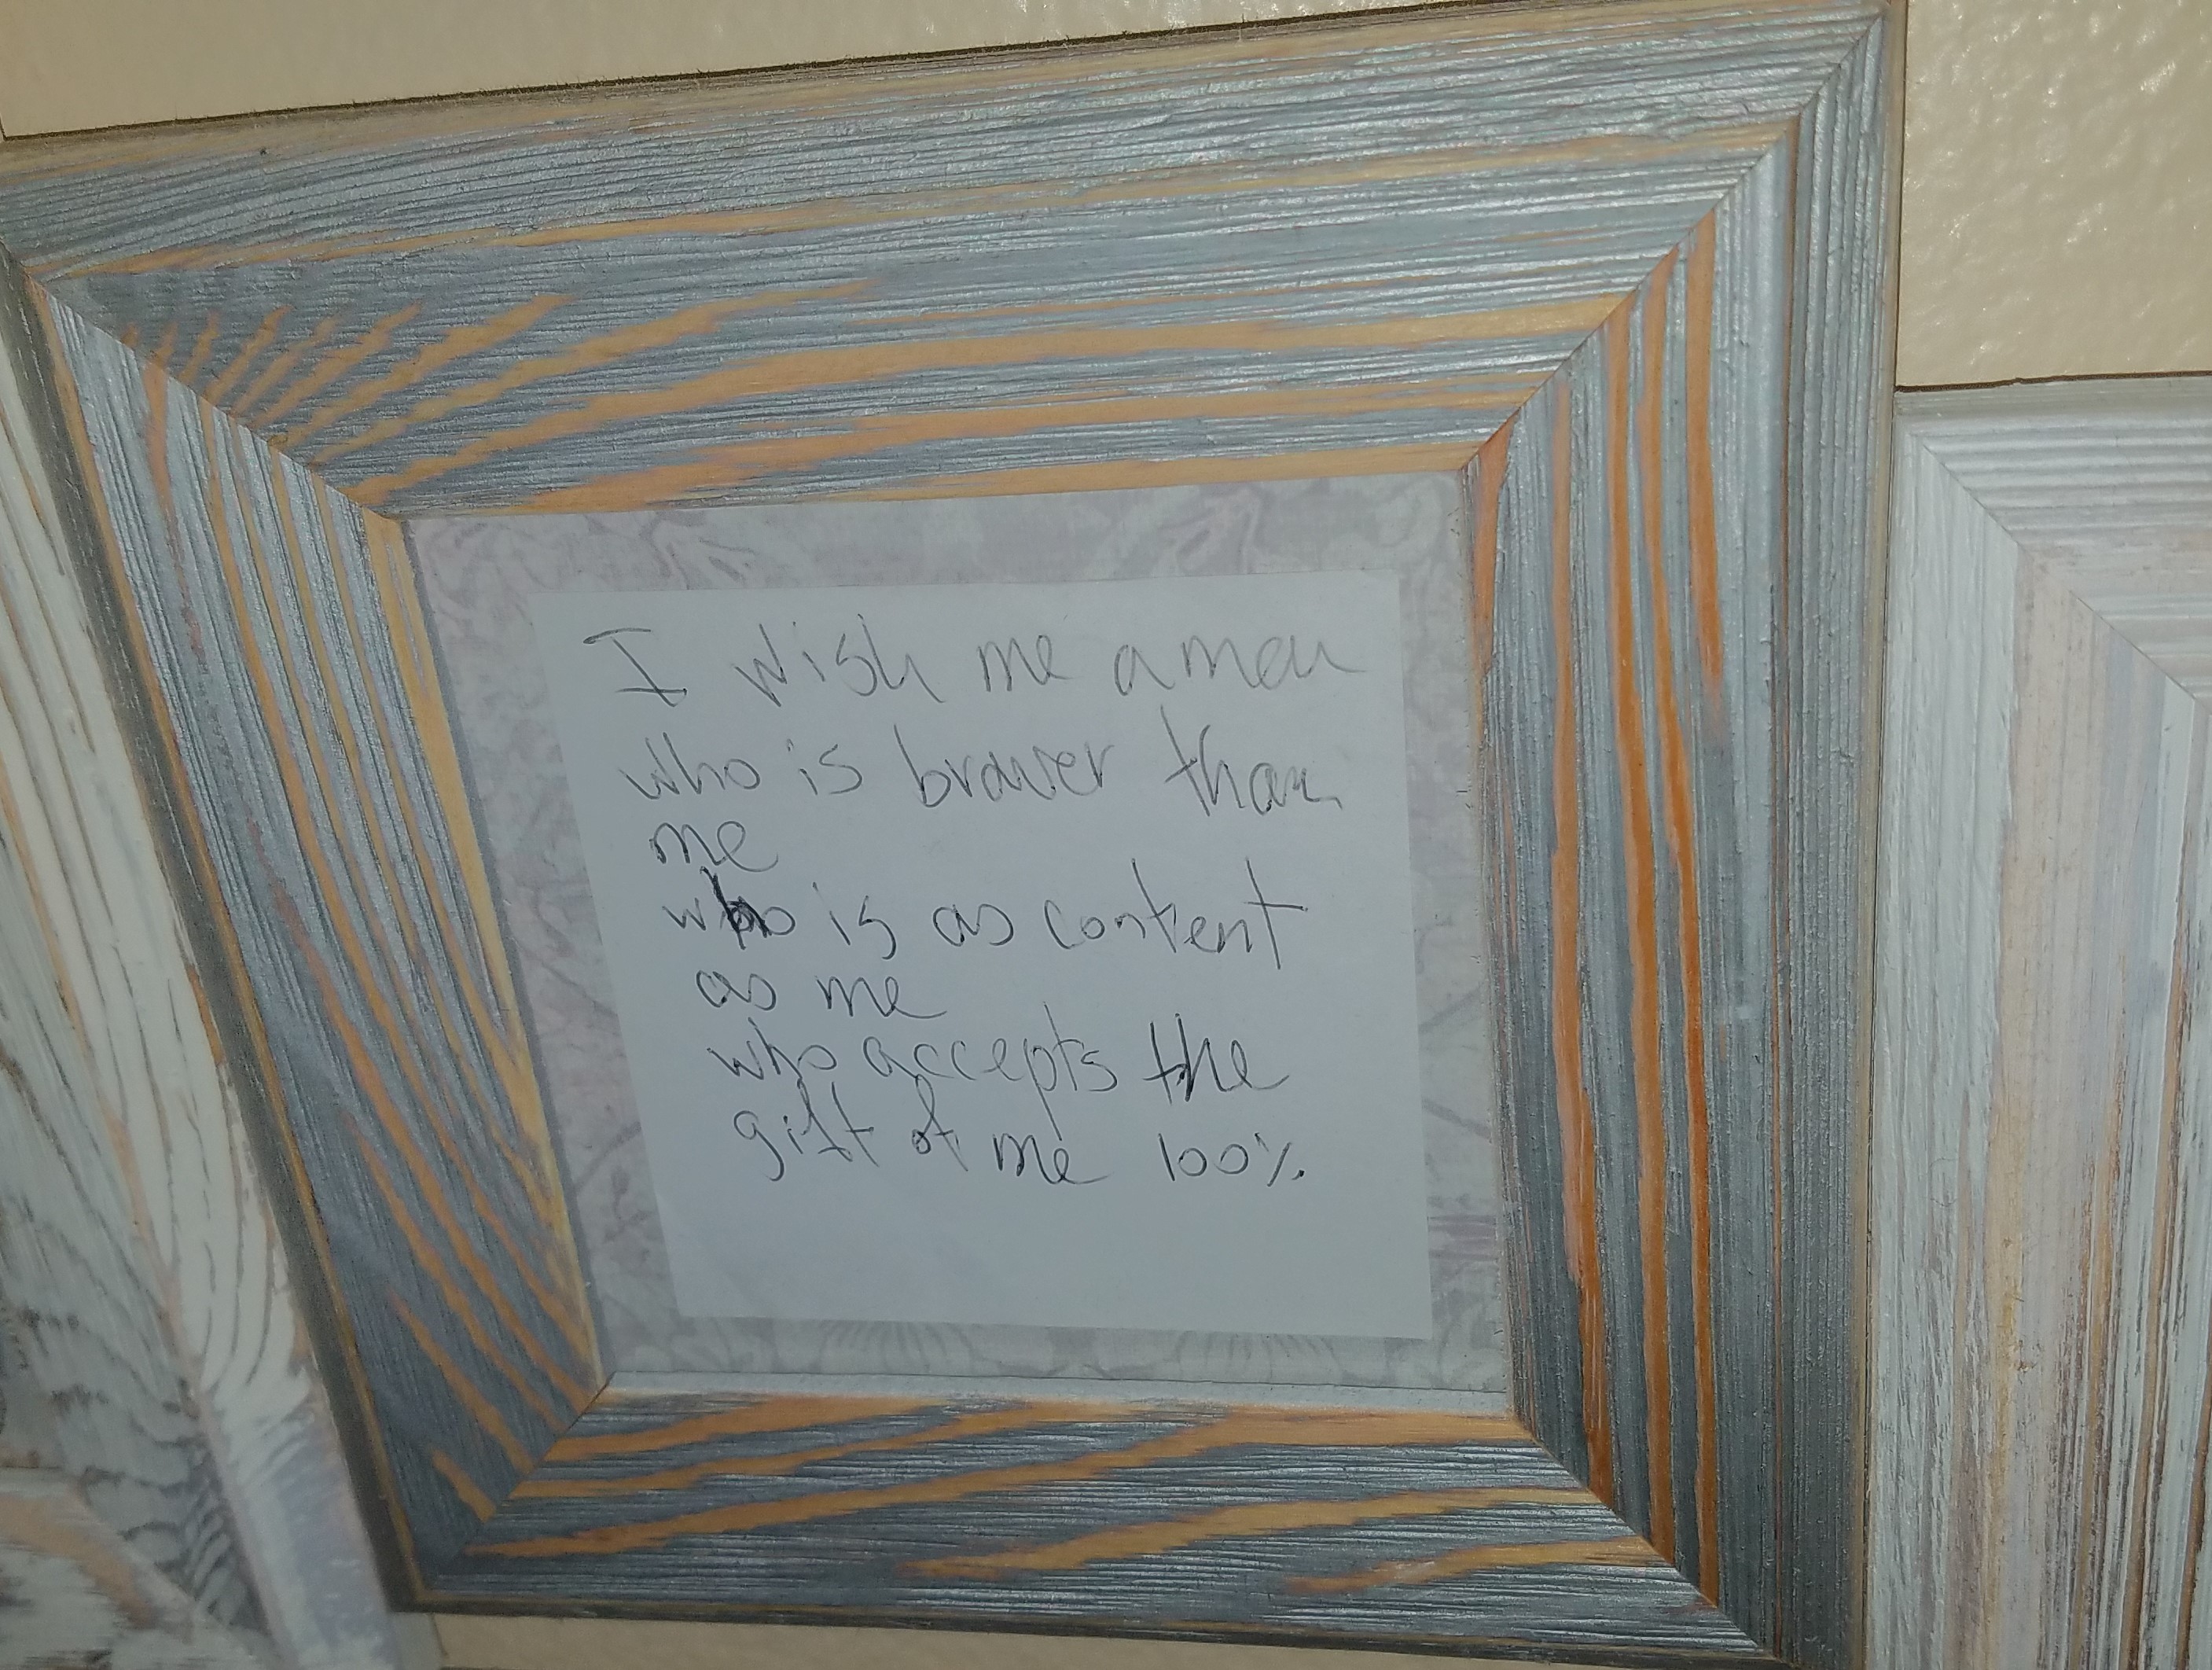 I wish me a man
who is braver than
me
who is as content
as me
who accepts the
gift of me 100%